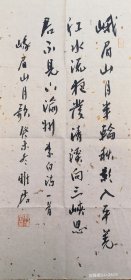 峨眉山月半轮秋影入平羌
江水流夜发清溪向三峡思
君不见下渝州 李白诗一首
峨眉山月歌 癸未冬